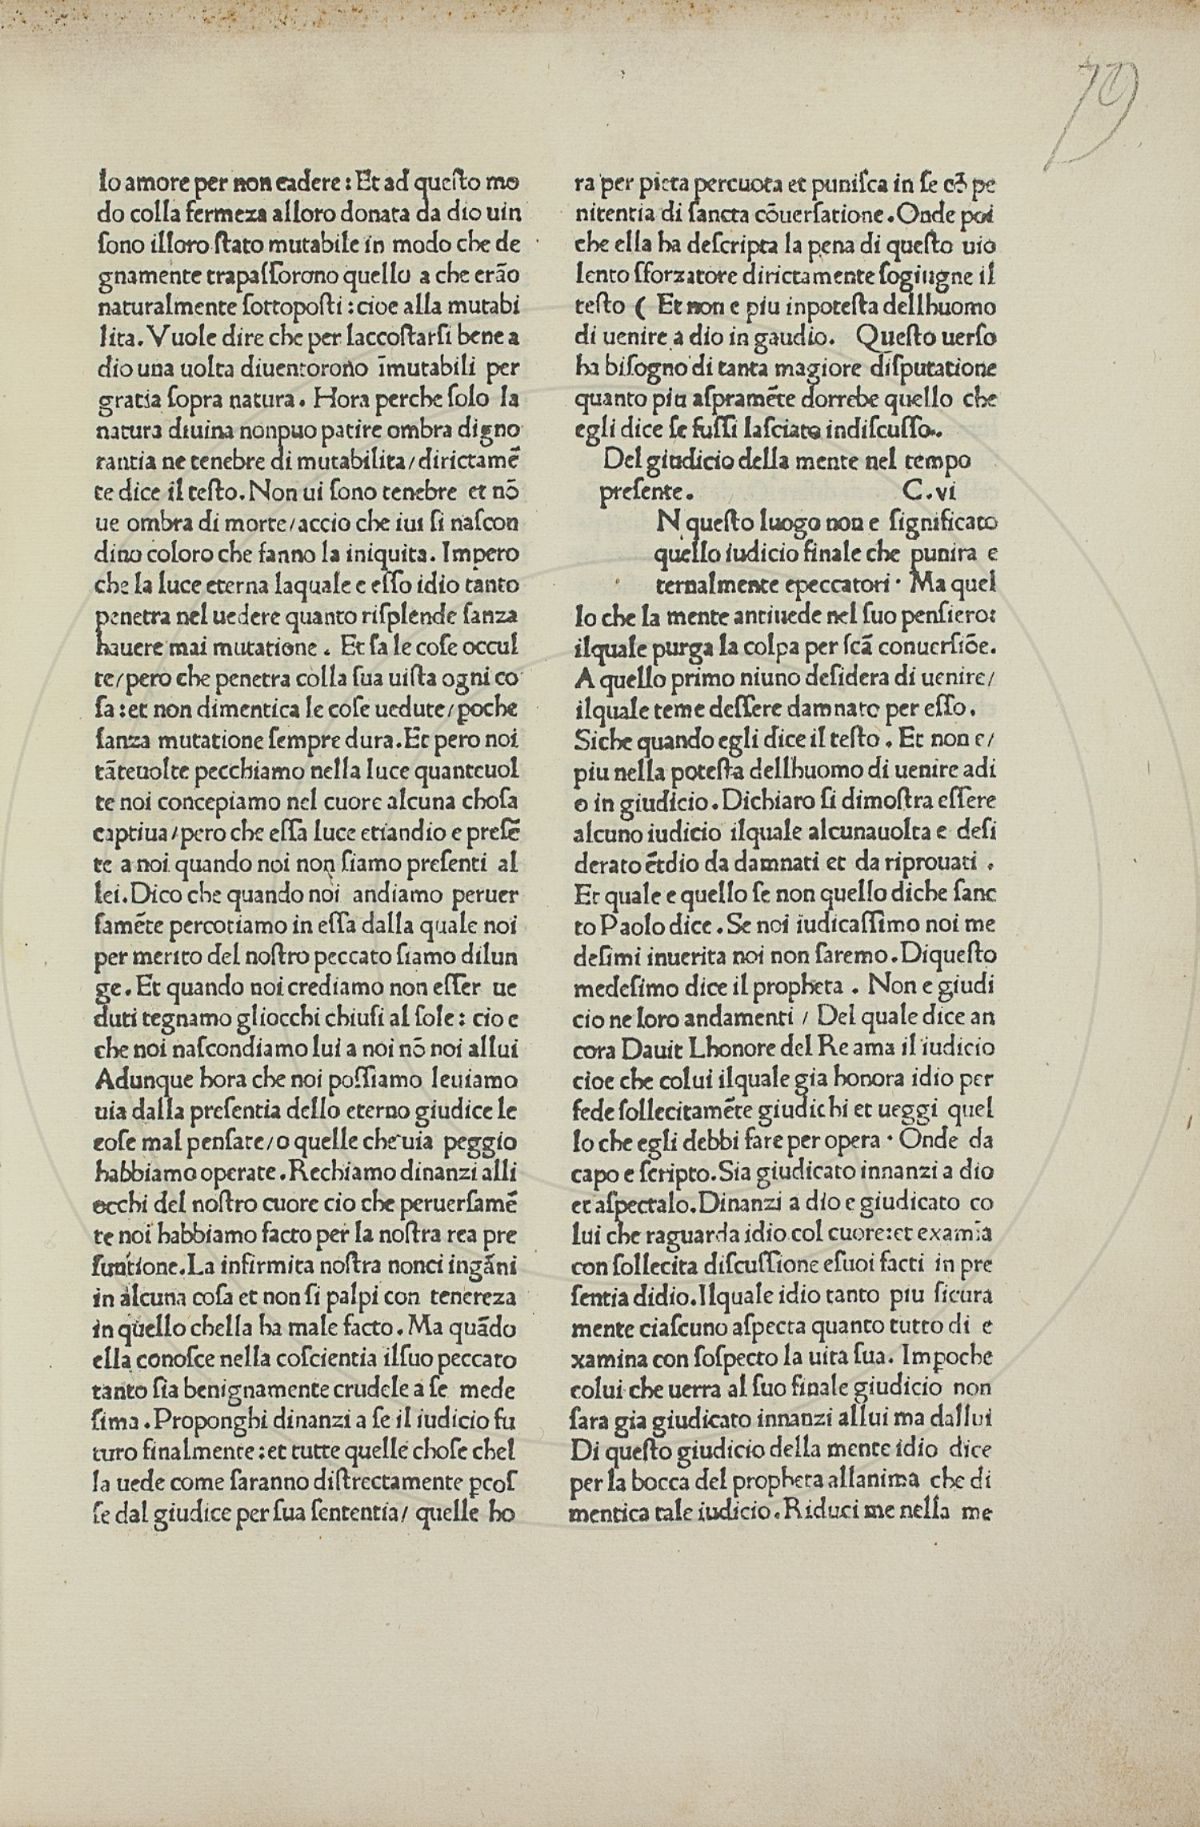 79
lo amore per non cadere : Et ad queſto mo
do colla fermeza alloro donata da dio uin
ſono illoro ſtato mutabile in modo che de
gnamente trapaſſorono quello a che erāo
naturalmente ſottopoſti : cioe alla mutabi
lita. Vuole dire che per laccoſtarſi bene a
dio una uolta diuentorono īmutabili per
gratia ſopra natura. Hora perche ſolo la
natura diuina nonpuo patire ombra digno
rantia ne tenebre di mutabilita/dirictamē
te dice il teſto. Non ui ſono tenebre et nō
ue ombra di morte/accio che iui ſi naſcon
dino coloro che fanno la iniquita. Impero
che la luce eterna laquale e eſſo idio tanto
penetra nel uedere quanto riſplende ſanza
hauere mai mutatione. Et ſa le coſe occul
te/pero che penetra colla ſua uiſta ogni co
ſa : et non dimentica le coſe uedute/ꝑoche
ſanza mutatione ſempre dura. Et pero noi
tāteuolte pecchiamo nella luce quanteuol
te noi concepiamo nel cuore alcuna choſa
captiua/pero che eſſa luce etiandio e preſē
te a noi quando noi non ſiamo preſenti al
lei. Dico che quando noi andiamo peruer
ſamēte percotiamo in eſſa dalla quale noi
per merito del noſtro peccato ſiamo dilun
ge. Et quando noi crediamo non eſſer ue
duti tegnamo gliocchi chiuſi al ſole : cio e
che noi naſcondiamo lui a noi nō noi allui
Adunque hora che noi poſſiamo leuiamo
uia dalla preſentia dello eterno giudice le
coſe mal penſate/o quelle che uia peggio
habbiamo operate. Rechiamo dinanzi alli
occhi del noſtro cuore cio che peruerſamē
te noi habbiamo facto per la noſtra rea pre
ſuntione. La infirmita noſtra nonci ingāni
in alcuna coſa et non ſi palpi con tenereza
in quello chella ha male facto. Ma quādo
ella conoſce nella coſcientia ilſuo peccato
tanto ſia benignamente crudele a ſe mede
ſima. Proponghi dinanzi a ſe il iudicio fu
turo finalmente : et tutte quelle choſe chel
la uede come ſaranno diſtrectamente ꝑcoſ
ſe dal giudice per ſua ſententia/ quelle ho
ra per pieta percuota et puniſca in ſe cō pe
nitentia di ſancta cōuerſatione. Onde poi
che ella ha deſcripta la pena di queſto uio
lento ſforzatore dirictamente ſogiugne il
teſto ( Et non e piu inpoteſta dellhuomo
di uenire a dio in gaudio. Queſto uerſo
ha biſogno di tanta magiore diſputatione
quanto piu aſpramēte dorrebe quello che
egli dice ſe fuſſi laſciato indiſcuſſo.
Del giudicio della mente nel tempo
preſente. C. vi
N queſto luogo non e ſignificato
quello iudicio finale che punira e
ternalmente epeccatori · Ma quel
lo che la mente antiuede nel ſuo penſiero:
ilquale purga la colpa per ſcā conuerſiōe.
A quello primo niuno deſidera di uenire/
ilquale teme deſſere damnato per eſſo.
Siche quando egli dice il teſto. Et non e/
piu nella poteſta dellhuomo di uenire adi
o in giudicio. Dichiaro ſi dimoſtra eſſere
alcuno iudicio ilquale alcunauolta e deſi
derato ētdio da damnati et da riprouati.
Et quale e quello ſe non quello diche ſanc
to Paolo dice. Se noi iudicaſſimo noi me
deſimi inuerita noi non ſaremo. Diqueſto
medeſimo dice il propheta. Non e giudi
cio ne loro andamenti / Del quale dice an
cora Dauit Lhonore del Re ama il iudicio
cioe che colui ilquale gia honora idio per
fede ſollecitamēte giudichi et ueggi quel
lo che egli debbi fare per opera · Onde da
capo e ſcripto. Sia giudicato innanzi a dio
et aſpectalo. Dinanzi a dio e giudicato co
lui che raguarda idio col cuore:et examīa
con ſollecita diſcuſſione eſuoi facti in pre
ſentia didio. Ilquale idio tanto piu ſicura
mente ciaſcuno aſpecta quanto tutto di e
xamina con ſoſpecto la uita ſua. Imꝑoche
colui che uerra al ſuo finale giudicio non
ſara gia giudicato innanzi allui ma dallui
Di queſto giudicio della mente idio dice
per la bocca del propheta allanima che di
mentica tale iudicio. Riduci me nella me